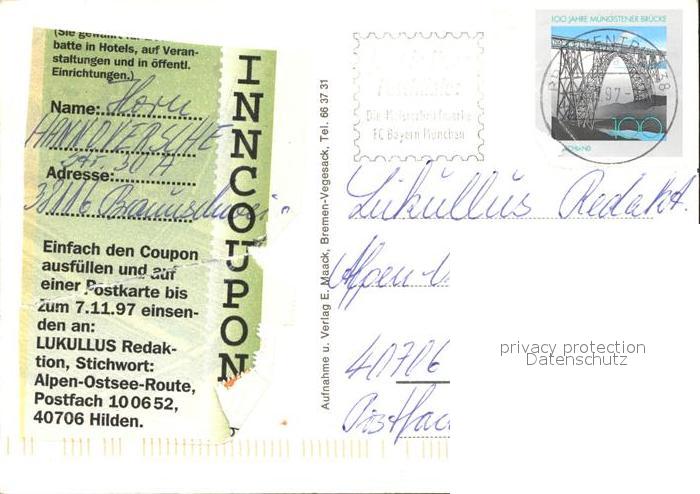 (Sie gewährt
batte in Hotels, auf Veran-
staltungen und in öffentl.
Einrichtungen.)
Name: Horn
HANNOVERSCHE
Adresse: STR. 30 A
38116 Braunschweig
Einfach den Coupon
ausfüllen und auf
einer Postkarte bis
zum 7.11.97 einsen-
den an:
LUKULLUS Redak-
tion, Stichwort:
Alpen-Ostsee-Route,
Postfach 10 06 52,
40706 Hilden.
INNCOUPON
Aufnahme u. Verlag E. Maack, Bremen-Vegesack, Tel. 66 37 31
FC Bayern München
100 JAHRE MÜNGSTENER BRÜCKE
BRIEFZENTRUM 38
97
100
Lukullus Redakt.
Alpen
40706
Postfac
privacy protection
Datenschutz